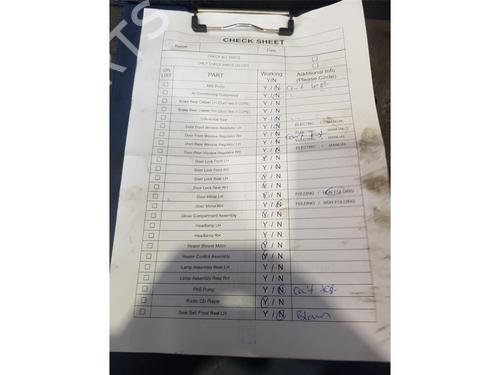 CHECK SHEET
CHECK ALL PARTS
ONLY CHECK PARTS LISTED
ON LIST PART Working Y/N Additional Info (Please Circle)
ABS Pump Y / N Can't test
Air Conditioning Compressor Y / N
Brake Rear Caliper LH Y / N
Brake Rear Caliper RH Y / N
Differential Rear Y / N
Door Front Window Regulator LH Y / N ELECTRIC / MANUAL
Door Front Window Regulator RH Y / N
Door Rear Window Regulator LH Y / N MANUAL
Door Rear Window Regulator RH Y / N ELECTRIC / MANUAL
Door Lock Front LH Y / N
Door Lock Front RH Y / N
Door Lock Rear LH Y / N
Door Lock Rear RH Y / N
Door Mirror LH Y / N FOLDING / NON FOLDING
Door Mirror RH Y / N FOLDING / NON FOLDING
Glove Compartment Assembly Y / N
Headlamp LH Y / N
Headlamp RH Y / N
Heater Blower Motor Y / N
Heater Control Assembly Y / N
Lamp Assembly Rear LH Y / N
Lamp Assembly Rear RH Y / N
PAS Pump Y / N Can't test
Radio CD Player Y / N
Seat Belt Front Rear LH Y / N Blown